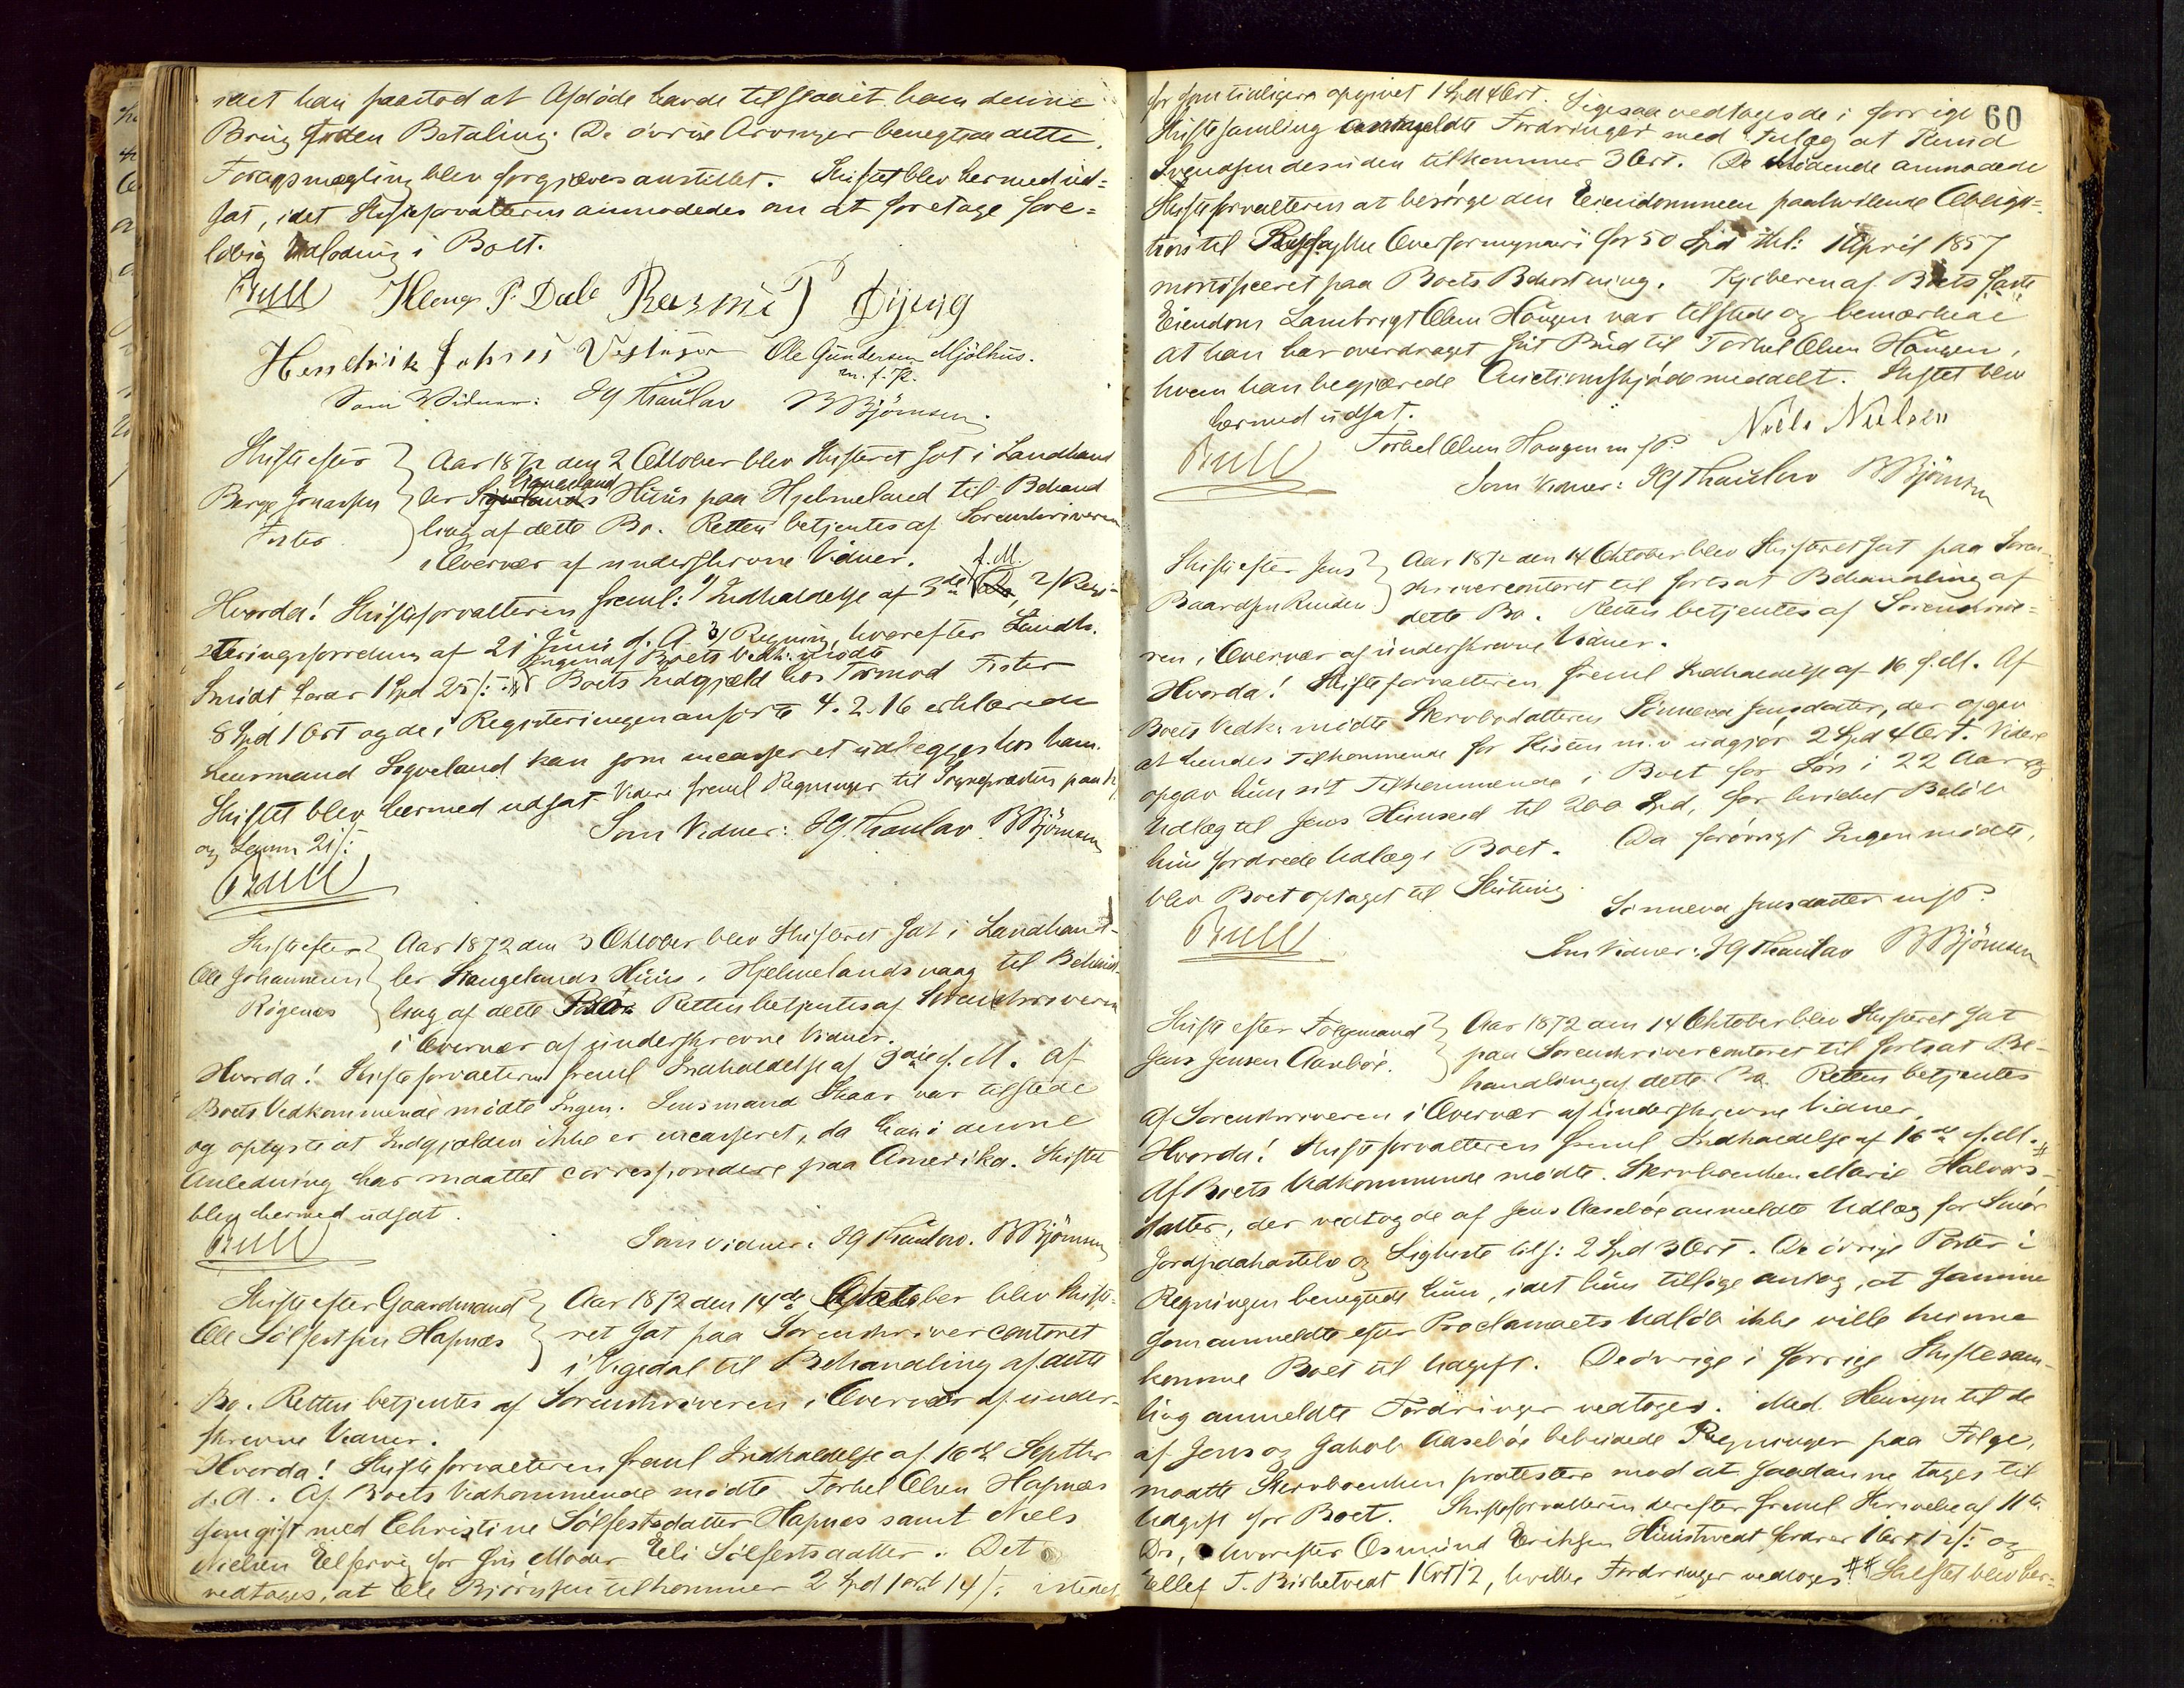 idet han paastod at Afdøde havde tilstaaet ham denne
Brug foden Betaling. De øvrige Arvinger benegtede dette.
Forligsmægling blev forgjæves anstillet. Skiftet blev hermed ud-
sat, idet Skifteforvalteren anmodedes om at foretage fore-
løbig Udlodning i Boet.
Bull Helge P. Dale Rasmus T Øijeng
Hendrik Johns Vestusen Ole Gundersen Mjølhus.
m. f. P.
Som Vidner: HG Thaulow BBjörnsen
Skifte efter
Berge Jonassen
Fister
Aar 1872 den 2 Oktober blev Skifteret sat i Landhand
ler Stangelands Huus paa Hjelmeland til Behand
ling af dette Bo. Retten betjentes af Sorenskriveren
i Overvær af underskrevne Vidner.
Hvorda! Skifteforvalteren freml: 1) Indkaldelse af 3de f. M. 2) Regi-
steringsforretning af 21 Juni d. A. 3) Regning, hvorefter Landh.
Ingen af Boets Vedk: mødte
Smidt havde 1 Spd 25 s: Boets Indgjæld hos Tormod Fister
8 Spd 1 Ort og de i Registeringen anførte 4. 2. 16 erklærede
Lensmand Sigveland kan som incasseret udlægges hos ham.
Skiftet blev hermed udsat. Videre freml Regninger til Sognepræsten paa 12
og 21 s:
Som Vidner: HG Thaulow. BBjörnsen
Bull
Skifte efter
Ole Johannesen
Røgenes
Aar 1872 den 3 Oktober blev Skifteret sat i Landhand-
ler Stangelands Huus i Hjelmelandsvaag til Behand-
ling af dette Bo. Retten betjentes af Sorenskriveren
i Overvær af underskrevne Vidner.
Hvorda! Skifteforvalteren freml Indkaldelse af 3die f. M. Af
Boets Vedkommende mødte Ingen. Lensmand Skaar var tilstede
og oplyste at Indgjælden ikke er incasseret, da han i denne
Anledning har maattet correspondere paa Amerika. Skiftet
blev hermed udsat.
Bull
Som Vidner: HG Thaulow. BBjörnsen
Skifte efter Gaardmand
Ole Sølfestsen Hapnæs
Aar 1872 den 14de Oktober blev Skifte-
ret sat paa Sorenskrivercontoret
i Vigedal til Behandling af dette
Bo. Retten betjentes af Sorenskriveren i Overvær af under-
skrevne Vidner.
Hvorda! Skifteforvalteren freml Indkaldelse af 16de Septbr
d. A. Af Boets Vedkommende mødte Torkel Olsen Hapnæs
som gift med Christine Sølfestsdatter Hapnæs samt Niels
Nielsen Elfervig for sin Moder Eli Sølfestsdatter. Det
vedtoges, at Ole Bjørnsen tilkommer 2 Spd 1 ort 14 s: istedet
60
for som tidligere opgivet 1 Spd 4 Ort. Ligesaa vedtoges de i forrige
Skiftesamling anmeldte Fordringer med Tillæg at Knud
Svendsen desuden tilkommer 3 Ort. De Mødende anmodede
Skifteforvalteren at besørge den Eiendommen paahvilende Obliga-
tion til Ryfylke Overformynderi for 50 Spd thl: 1 April 1857
mortificeret paa Boets Bekostning. Kjøberen af Boets faste
Eiendom Lambrigt Olsen Haugen var tilstede og bemærkede
at han har overdraget sit Bud til Torkel Olsen Haugen,
hvem han begjærede Auctionsskjøde meddelt. Skiftet blev
hermed udsat.
Bull Torkel Olsen Haugen m f P. Niels Nielsen
Som Vidner: HG Thaulow BBjörnsen
Skifte efter Jens
Baardsen Ruiden
Aar 1872 den 14 Oktober blev Skifteret sat paa Soren-
skrivercontoret til fortsat Behandling af
dette Bo. Retten betjentes af Sorenskrive-
ren i Overvær af underskrevne Vidner.
Hvorda! Skifteforvalteren freml Indkaldelse af 16 f. M. Af
Boets Vedk: mødte Stervbodatteren Sønneva Jensdatter, der opgav
at hendes Tilkommende for Kisten m. v udgjør 2 Spd 4 Ort. Videre
opgav hun sit Tilkommende i Boet for Løn i 22 Aar og
Udlæg til Jens Huuseed til 200 Spd, for hvilket Beløb
hun fordrede Udlæg i Boet. Da forøvrigt Ingen mødte,
blev Boet optaget til Slutning.
Bull
Sønneva Jensdatter m f P.
Som Vidner: HG Thaulow BBjörnsen
Skifte efter Føgemand
Jens Jensen Aasebøe.
Aar 1872 den 14 Oktober blev Skifteret sat
paa Sorenskrivercontoret til fortsat Be-
handling af dette Bo. Retten betjentes
af Sorenskriveren i Overvær af underskrevne Vidner.
Hvorda! Skifteforvalteren freml Indkaldelse af 16de f. M. #
Af Boets Vedkommende mødte Stervboenken Marie Halvors-
datter, der vedtog de af Jens Aasebøe anmeldte Udlæg for Smør
Jordpaakastelse og Ligkiste tils: 2 Spd 3 Ort. De øvrige Poster i
Regningen benegtede hun, idet hun tillige antog, at samme
som anmeldte efter Proclamaets Udløb ikke ville kunne
komme Boet til Udgift. De øvrige i forrige Skiftesam-
ling anmeldte Fordringer vedtoges. Med Hensyn til de
af Jens og Jakob Aasebøe bebudede Regninger paa Følge,
maatte Stervboenken protestere mod at saadanne tages til
Udgift for Boet. Skifteforvalteren derefter freml Skrivelse af 11te
Ds, hvorefter Osmund Eriksen Huustvedt fordrer 1 Ort 12 s: og
Ellef T. Birketvedt 1 Ort 12, hvilke Fordringer vedtoges ## Skiftet blev her-